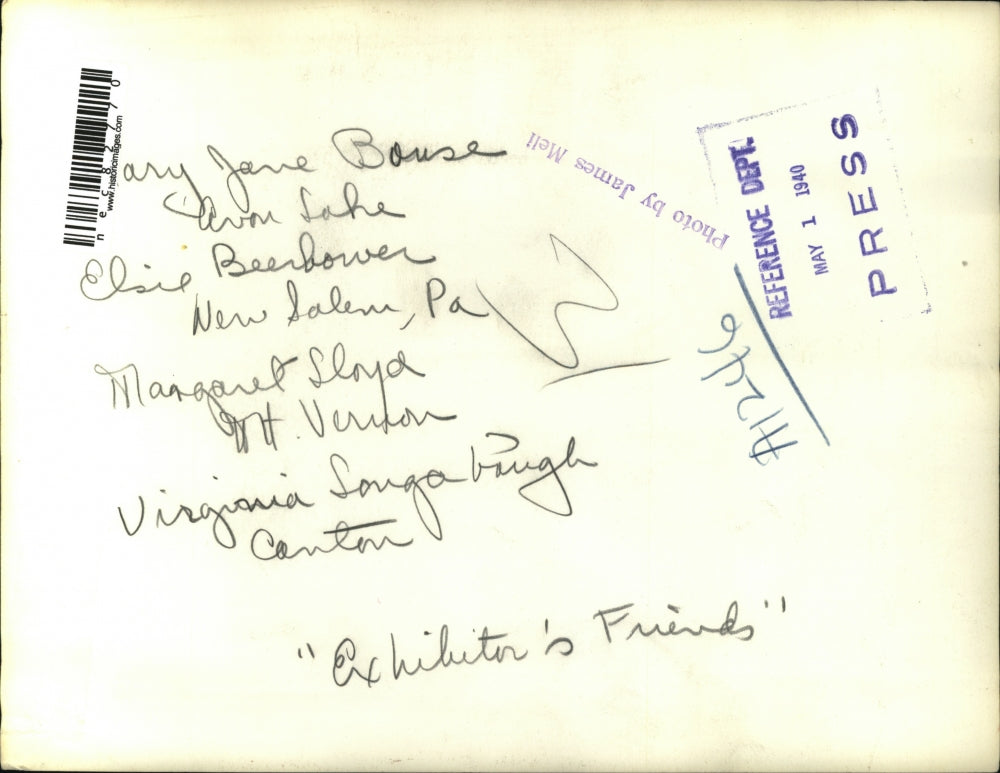 nec82770
www.historicimages.com
ary Jane Bouse
Avon Lake
Elsie Beerbower
New Salem, Pa
Margaret Lloyd
Mt. Vernon
Virginia
Canton
"Exhibitor's Friends"
Photo by James Mell
REFERENCE DEPT.
MAY 1 1940
PRESS